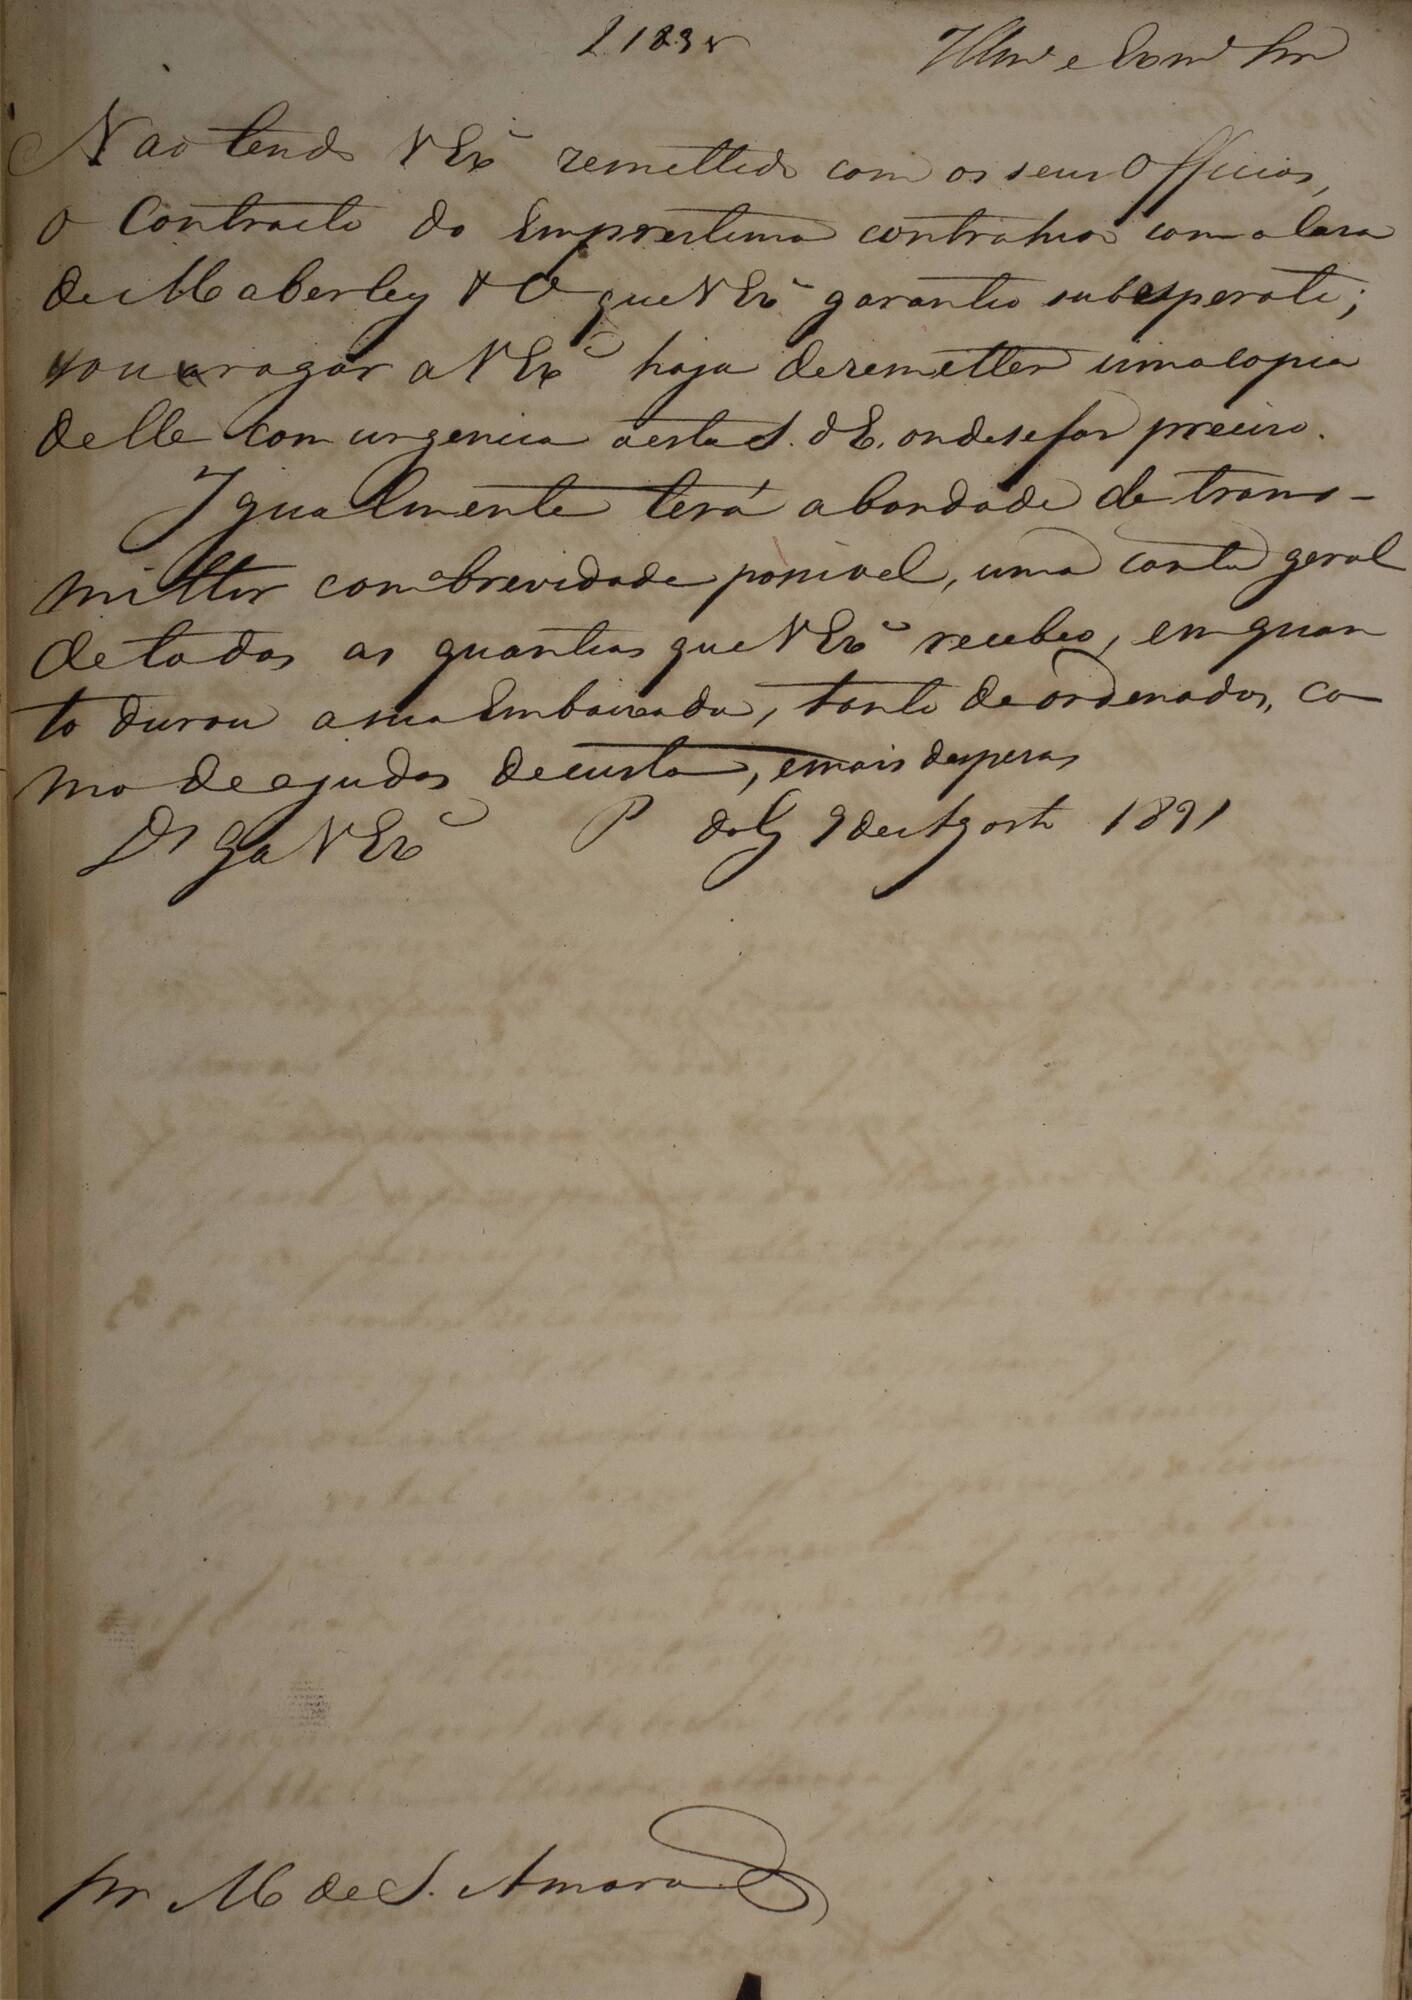 Illmo e Exmo Snr
Não tendo V Exa remettido com os seus Officios,
o Contracto do Emprestimo contrahido com a Casa
de Maberley & Ca que V Exa garantio sub esperate;
vou rogar a V Exa haja de remetter uma copia
delle com urgencia a esta S. d'E. onde se faz preciso.
Igualmente terá a bondade de trans-
mittir com a brevidade possivel, uma conta geral
de todas as quantias que V Exa recebeo, em quan
to durou a sua Embaixada, tanto de ordenados, co-
mo de ajudas de custo, e mais despesas
Ds Ge a V Exa P do G 9 de Agosto 1831
Snr M de S. Amaro